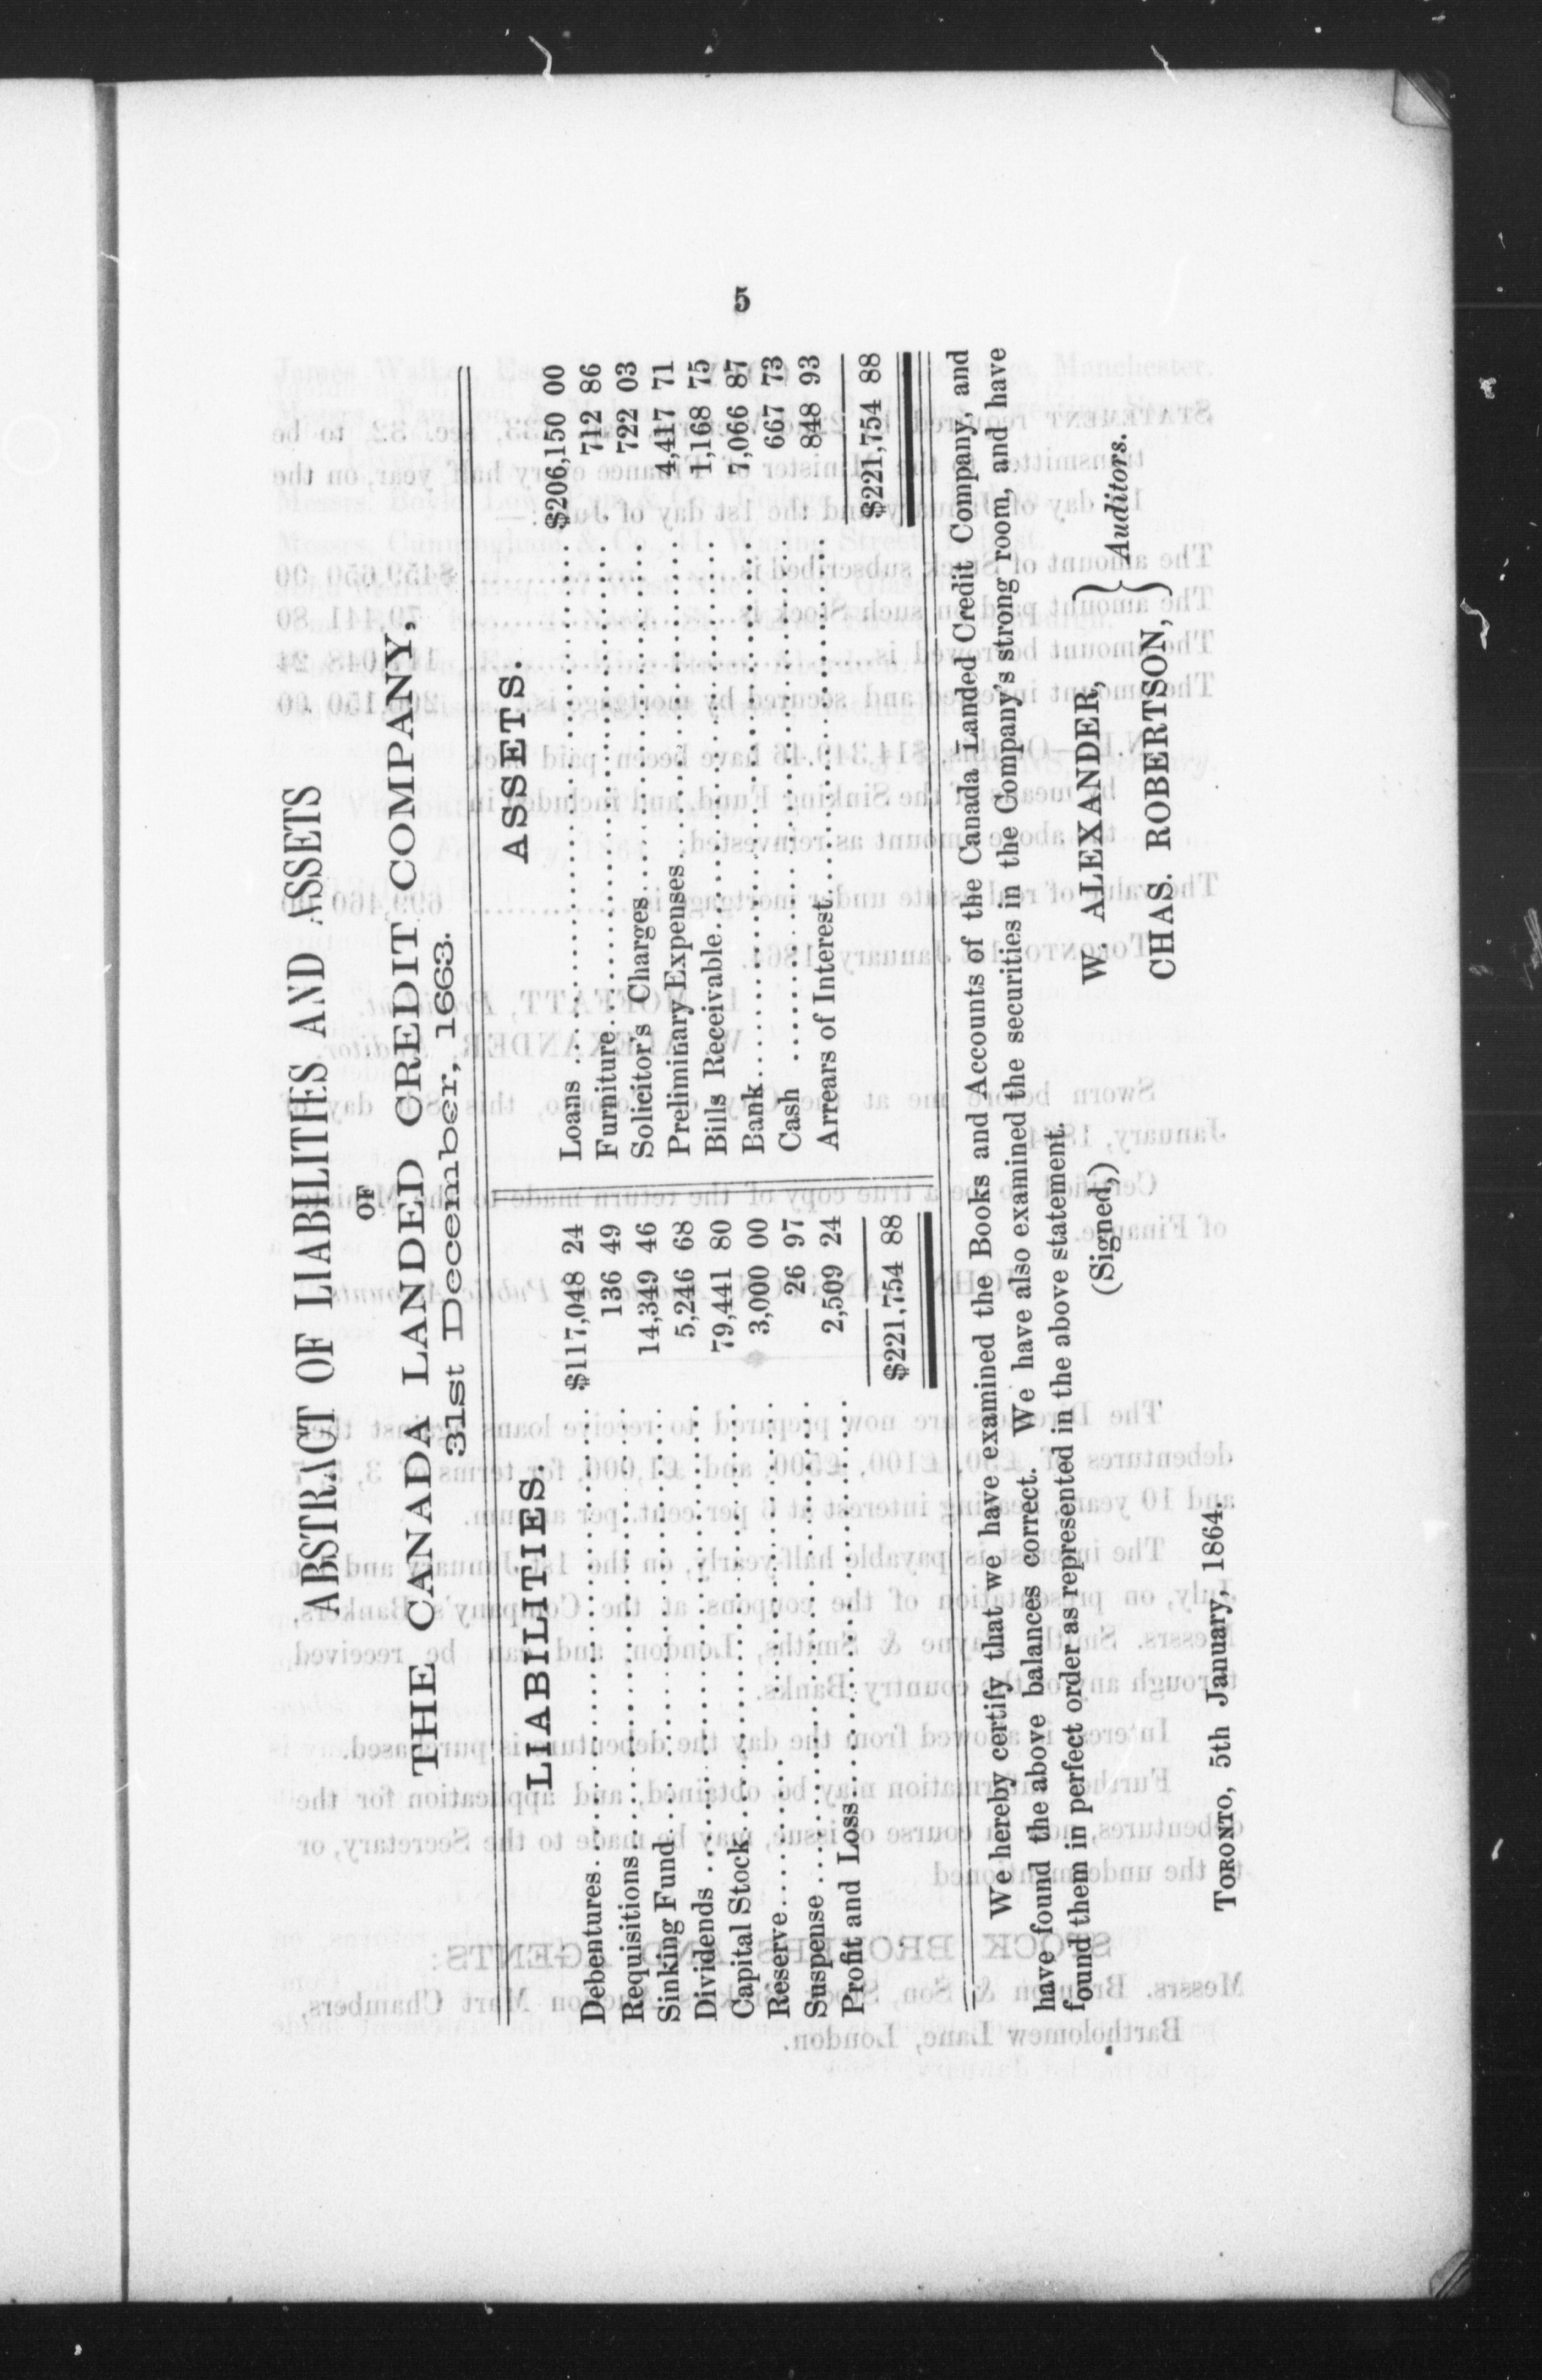 5
ABSTRACT OF LIABILITIES AND ASSETS
OF
THE CANADA LANDED CREDIT COMPANY,
31st December, 1663.
LIABILITIES.
Debentures.................... $117,048 24
Requisitions.................... 136 49
Sinking Fund.................... 14,349 46
Dividends.................... 5,246 68
Capital Stock.................... 79,441 80
Reserve.................... 3,000 00
Suspense.................... 26 97
Profit and Loss.................... 2,509 24
$221,754 88
ASSETS.
Loans.................... $206,150 00
Furniture.................... 712 86
Solicitor's Charges.................... 722 03
Preliminary Expenses.................... 4,417 71
Bills Receivable.................... 1,168 75
Bank.................... 7,066 87
Cash.................... 667 73
Arrears of Interest.................... 848 93
$221,754 88
We hereby certify that we have examined the Books and Accounts of the Canada Landed Credit Company, and
have found the above balances correct. We have also examined the securities in the Company's strong room, and have
found them in perfect order as represented in the above statement.
(Signed,) W. ALEXANDER,
CHAS. ROBERTSON, } Auditors.
TORONTO, 5th January, 1864.